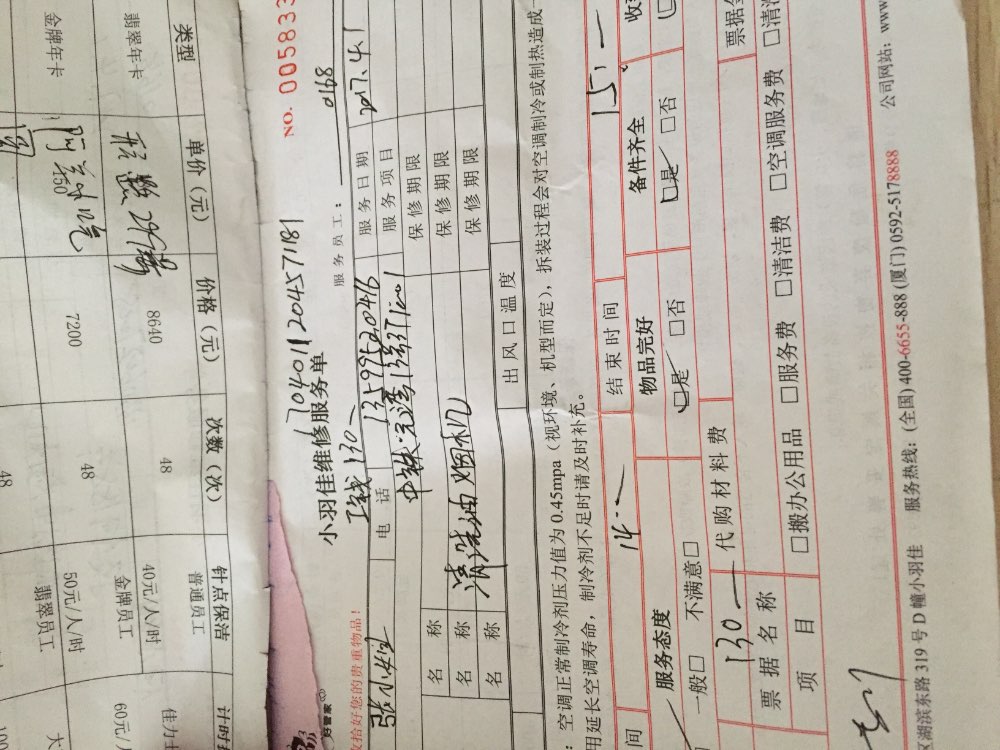 类型
单价（元）
价格（元）
次数（次）
针点保洁
普通员工
翡翠年卡
8640
48
40元/人/时
金牌员工
60元/
金牌年卡
150
7200
48
50元/人/时
翡翠员工
48
NO. 005833
170401112045 71181
小羽佳维修服务单
服务员工：
0168
好管家
收拾好您的贵重物品！
工钱130
张小姐
电话
13599520416
服务日期
2017.4.1
服务项目
名称
保修期限
名称
清洗油烟机
保修期限
名称
保修期限
出风口温度
：空调正常制冷剂压力值为 0.45mpa（视环境、机型而定），拆装过程会对空调制冷或制热造成
用延长空调寿命，制冷剂不足时请及时补充。
间
14
结束时间
15
服务态度
物品完好
备件齐全
收
一般□ 不满意□
□是 □否
□是 □否
130
代购材料费
票据名称
票据金
项目
□搬办公用品 □服务费 □清洁费 □空调服务费 □清
湖滨东路 319 号 D 幢小羽佳 服务热线：(全国) 400-6655-888 (厦门) 0592-5178888 公司网站：www